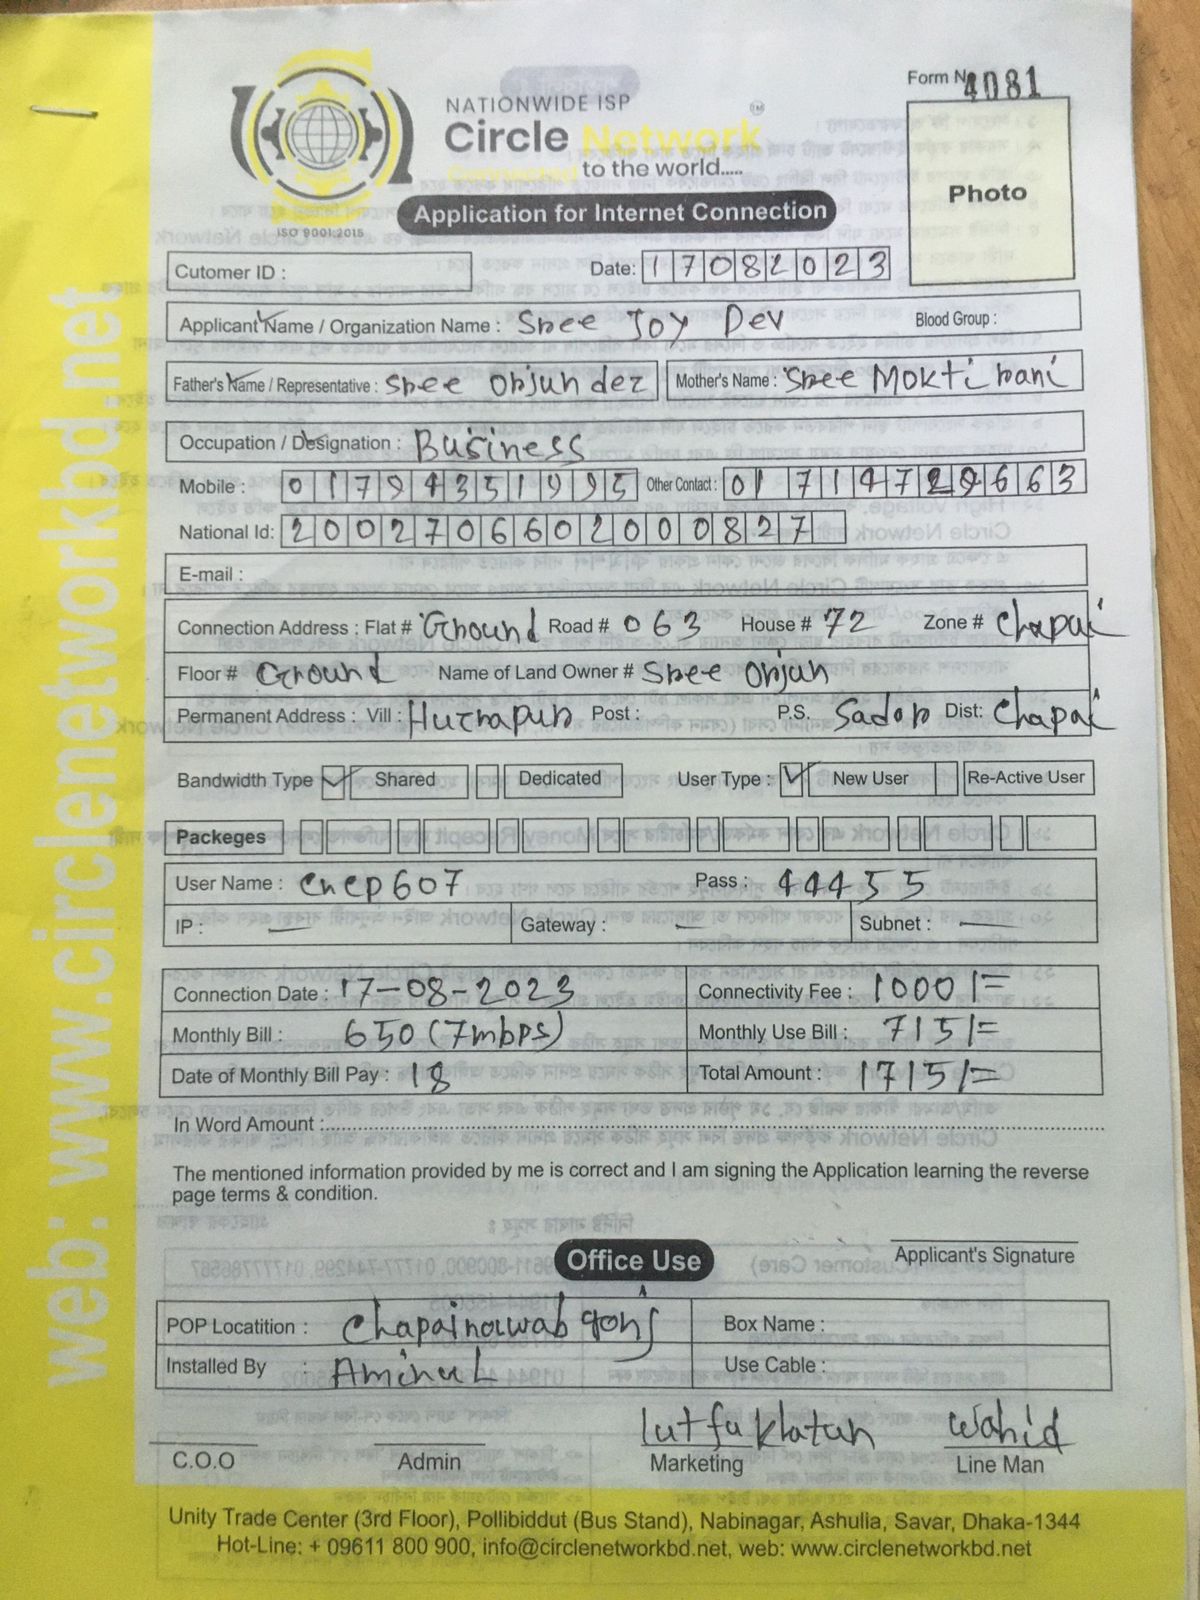 Form No 4081
NATIONWIDE ISP
Circle Network TM
Connected to the world.....
ISO 9001:2015
Application for Internet Connection
Photo
Cutomer ID : Date: 17082023
Applicant Name / Organization Name : Sree Joy Dev Blood Group :
Father's Name / Representative : Sree Orjun der Mother's Name : Sree Mokti rani
Occupation / Designation : Business
Mobile : 01794351995 Other Contact : 01714729663
National Id: 20027066020000827
E-mail :
Connection Address : Flat # Ground Road # 063 House # 72 Zone # Chapai
Floor # Ground Name of Land Owner # Sree Orjun
Permanent Address : Vill : Hurrapur Post : P.S. Sador Dist: Chapai
Bandwidth Type Shared Dedicated User Type : New User Re-Active User
Packeges
User Name : cncp607 Pass : 44455
IP : — Gateway : — Subnet : —
Connection Date : 17-08-2023 Connectivity Fee : 1000/=
Monthly Bill : 650 (7mbps) Monthly Use Bill : 715/=
Date of Monthly Bill Pay : 18 Total Amount : 1715/=
In Word Amount :
The mentioned information provided by me is correct and I am signing the Application learning the reverse
page terms & condition.
Applicant's Signature
Office Use
POP Locatition : Chapainawabgonj Box Name :
Installed By : Aminul Use Cable :
Lutfu Wahid
C.O.O Admin Marketing Line Man
Unity Trade Center (3rd Floor), Pollibiddut (Bus Stand), Nabinagar, Ashulia, Savar, Dhaka-1344
Hot-Line: + 09611 800 900, info@circlenetworkbd.net, web: www.circlenetworkbd.net
web: www.circlenetworkbd.net